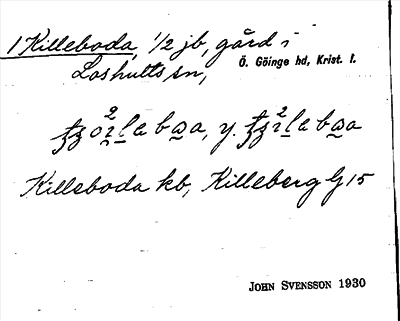 1 Killeboda, 1/2 jb, gård i
Loshults sn, Ö. Göinge hd, Krist. l.
y.
Killeboda kb, Killeberg G 15
JOHN SVENSSON 1930